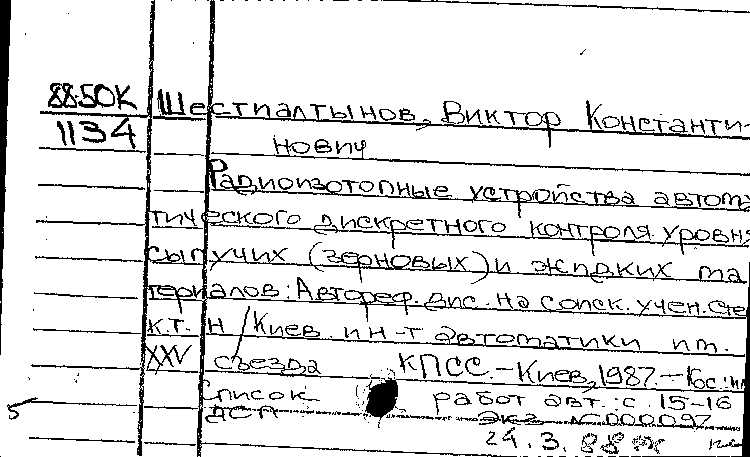 88-50К Шестиалтынов, Виктор Константи-
1134 нович
Радиоизотопные устройства автома
тического дискретного контроля уровня
сыпучих (зерновых) и жидких ма
териалов: Автореф. дис. на соиск. учен. сте
к.т.н / Киев. ин-т автоматики им.
XXV съезда КПСС. - Киев, 1987. -
Список работ авт.: с. 15-16
5 ДСП Экз №000097
24.3.88